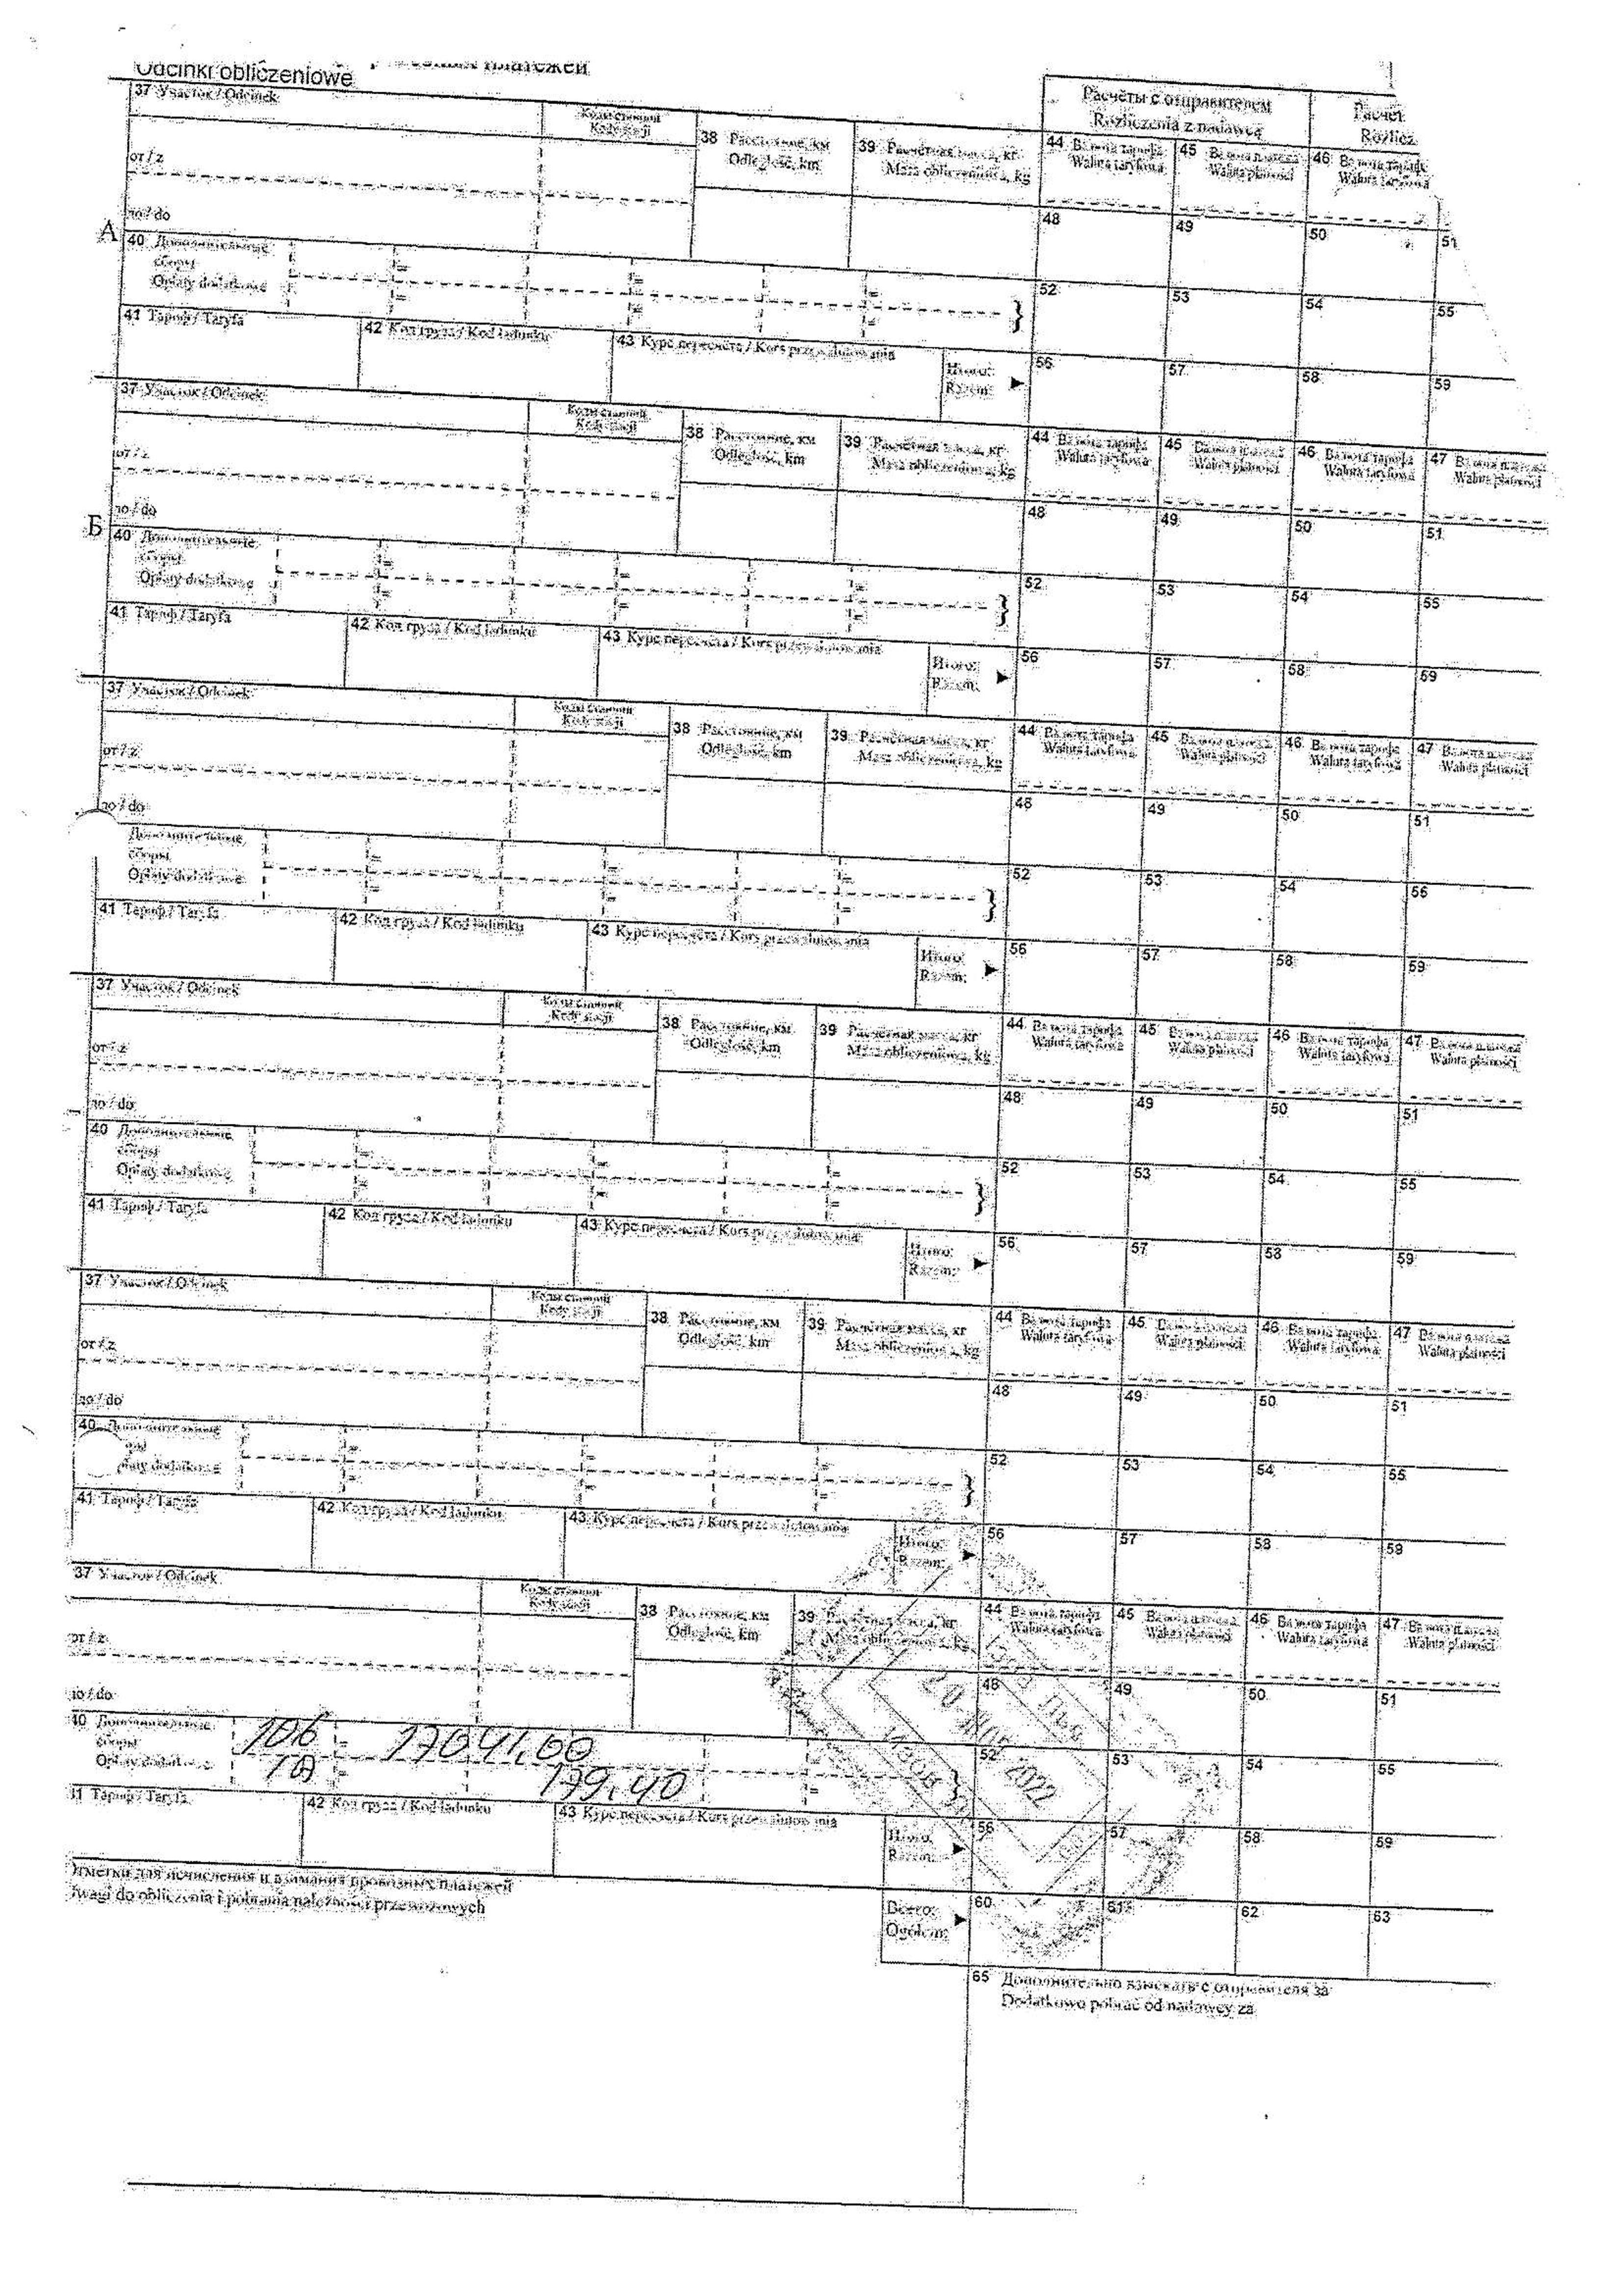 платежей
Odcinki obliczeniowe
Расчёты с отправителем
Rozliczenia z nadawcą
Расчёт
Rozlicz
37 Участок / Odcinek
Коды станций
Kody stacji
38 Расстояние, км
Odległość, km
39 Расчётная масса, кг
Masa obliczeniowa, kg
44 Валюта тарифа
Waluta taryfowa
45 Валюта платежа
Waluta płatności
46 Валюта тарифа
Waluta taryfowa
от / z
48 49 50 51
по / do
А
40 Дополнительные
сборы
Opłaty dodatkowe
= = =
= = = }
52 53 54 55
41 Тариф / Taryfa
42 Код груза / Kod ładunku
43 Курс пересчёта / Kurs przewalutowania
Итого:
Razem:
56 57 58 59
37 Участок / Odcinek
Коды станций
Kody stacji
38 Расстояние, км
Odległość, km
39 Расчётная масса, кг
Masa obliczeniowa, kg
44 Валюта тарифа
Waluta taryfowa
45 Валюта платежа
Waluta płatności
46 Валюта тарифа
Waluta taryfowa
47 Валюта платежа
Waluta płatności
от / z
48 49 50 51
по / do
Б
40 Дополнительные
сборы
Opłaty dodatkowe
= = =
= = = }
52 53 54 55
41 Тариф / Taryfa
42 Код груза / Kod ładunku
43 Курс пересчёта / Kurs przewalutowania
Итого:
Razem:
56 57 58 59
37 Участок / Odcinek
Коды станций
Kody stacji
38 Расстояние, км
Odległość, km
39 Расчётная масса, кг
Masa obliczeniowa, kg
44 Валюта тарифа
Waluta taryfowa
45 Валюта платежа
Waluta płatności
46 Валюта тарифа
Waluta taryfowa
47 Валюта платежа
Waluta płatności
от / z
48 49 50 51
по / do
Дополнительные
сборы
Opłaty dodatkowe
= = =
= = = }
52 53 54 56
41 Тариф / Taryfa
42 Код груза / Kod ładunku
43 Курс пересчёта / Kurs przewalutowania
Итого:
Razem:
56 57 58 59
37 Участок / Odcinek
Коды станций
Kody stacji
38 Расстояние, км
Odległość, km
39 Расчётная масса, кг
Masa obliczeniowa, kg
44 Валюта тарифа
Waluta taryfowa
45 Валюта платежа
Waluta płatności
46 Валюта тарифа
Waluta taryfowa
47 Валюта платежа
Waluta płatności
от / z
48 49 50 51
по / do
40 Дополнительные
сборы
Opłaty dodatkowe
= = =
= = = }
52 53 54 55
41 Тариф / Taryfa
42 Код груза / Kod ładunku
43 Курс пересчёта / Kurs przewalutowania
Итого:
Razem:
56 57 58 59
37 Участок / Odcinek
Коды станций
Kody stacji
38 Расстояние, км
Odległość, km
39 Расчётная масса, кг
Masa obliczeniowa, kg
44 Валюта тарифа
Waluta taryfowa
45 Валюта платежа
Waluta płatności
46 Валюта тарифа
Waluta taryfowa
47 Валюта платежа
Waluta płatności
от / z
48 49 50 51
по / do
40 Дополнительные
dodatkowe
= = =
= = = }
52 53 54 55
41 Тариф / Taryfa
42 Код груза / Kod ładunku
43 Курс пересчёта / Kurs przewalutowania
Итого:
Razem:
56 57 58 59
37 Участок / Odcinek
Коды станций
Kody stacji
38 Расстояние, км
Odległość, km
39 Расчётная масса, кг
Masa obliczeniowa, kg
44 Валюта тарифа
Waluta taryfowa
45 Валюта платежа
Waluta płatności
46 Валюта тарифа
Waluta taryfowa
47 Валюта платежа
Waluta płatności
от / z
48 49 50 51
по / do
40 Дополнительные
сборы
Opłaty dodatkowe
106 = 17041,00
10 = 179,40
52 53 54 55
2022
41 Тариф / Taryfa
42 Код груза / Kod ładunku
43 Курс пересчёта / Kurs przewalutowania
Итого:
Razem:
56 57 58 59
Отметки для исчисления и взимания провозных платежей
Uwagi do obliczenia i pobrania należności przewozowych
Всего:
Ogółem:
60 61 62 63
65 Дополнительно взыскать с отправителя за
Dodatkowo pobrać od nadawcy za